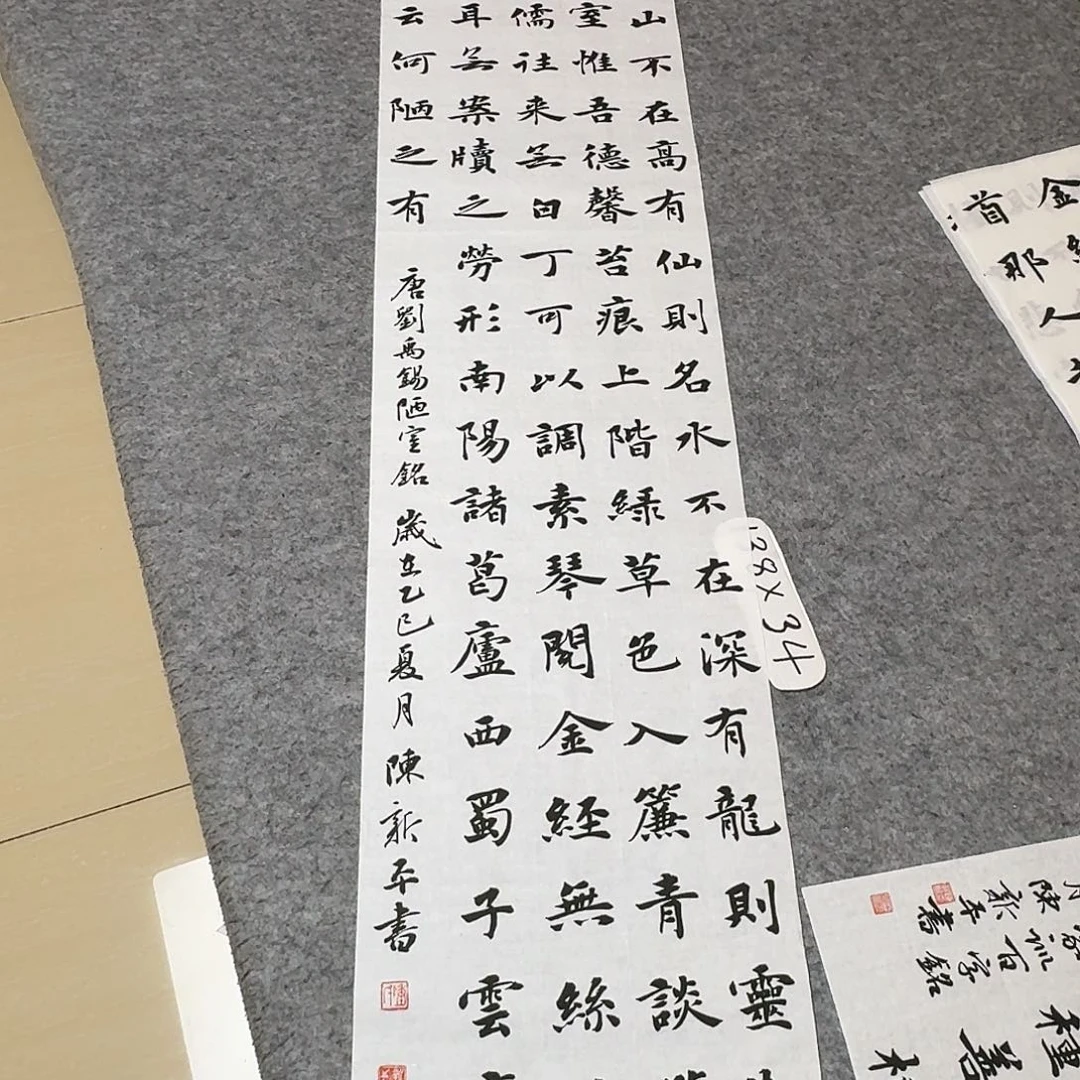 山不在高有仙則名水不在深有龍則靈
室惟吾德馨苔痕上階緑草色入簾青談
儒往来無白丁可以調素琴閱金經無絲
耳無案牘之勞形南陽諸葛廬西蜀子雲
云何陋之有
唐劉禹錫陋室銘 歲在乙巳夏月 陳新平書
128X34
金
人
首那
種
善
百字銘
陳新平書